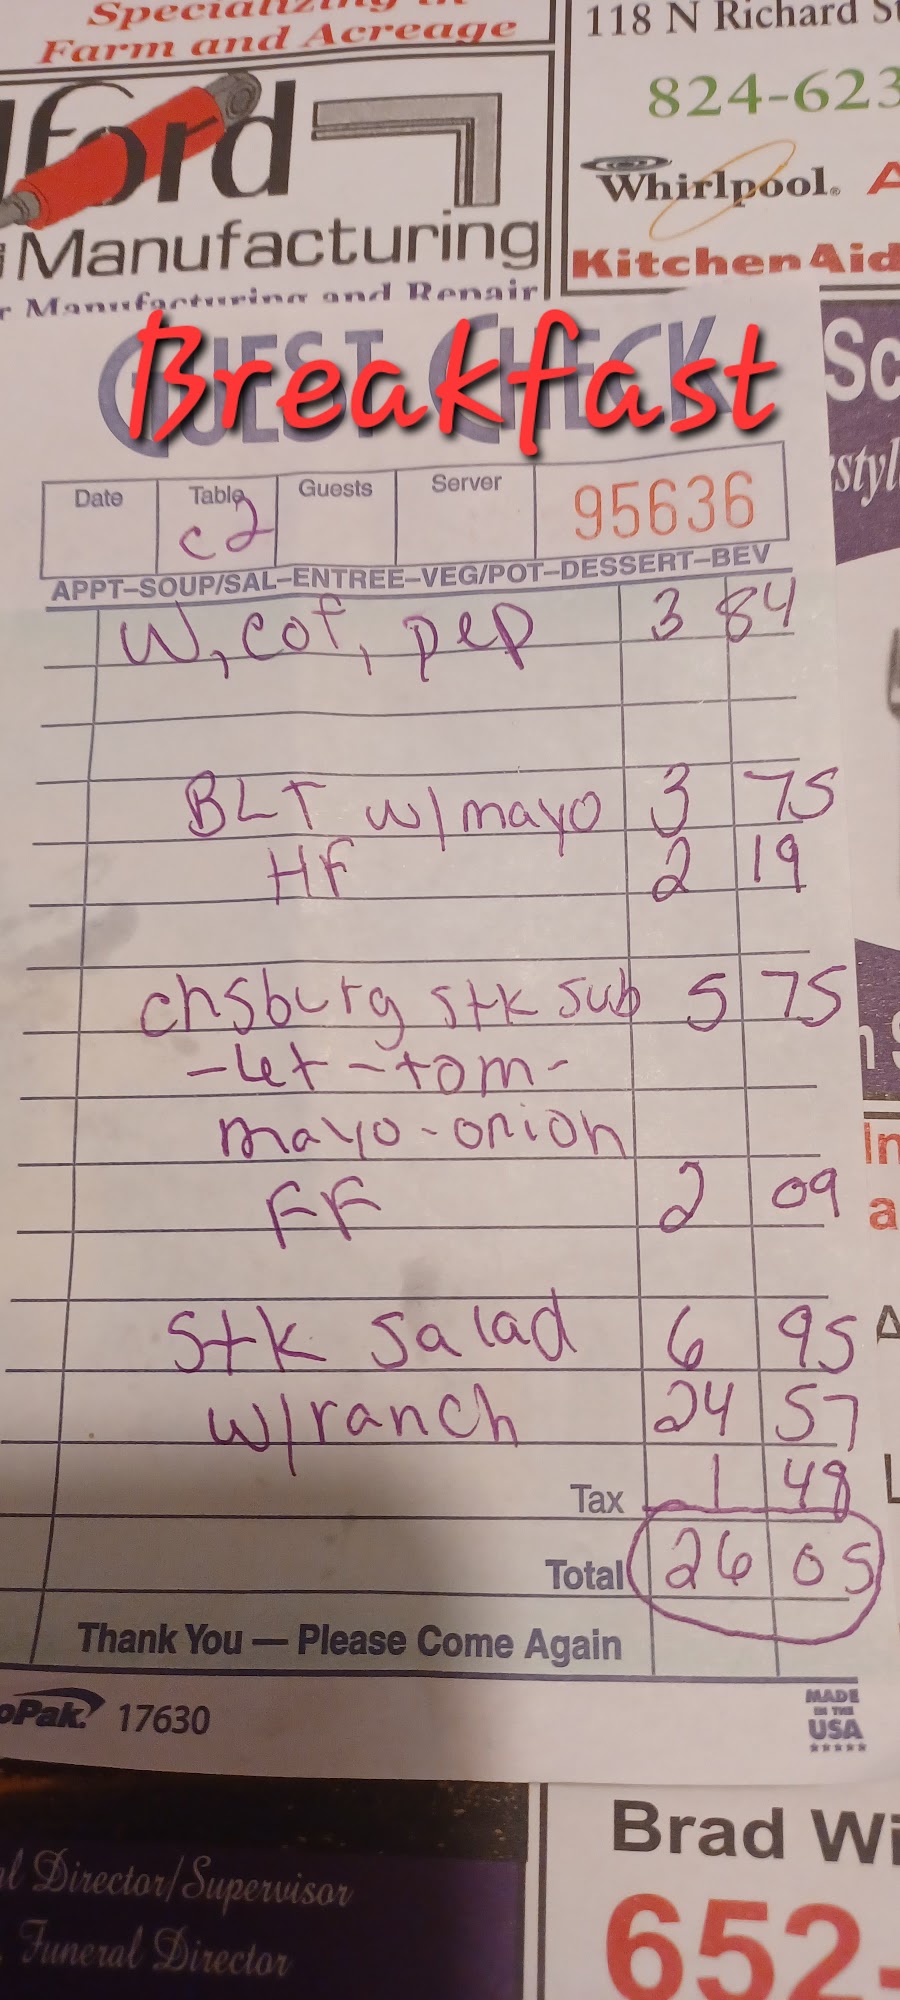 Specializing in
Farm and Acreage
118 N Richard
824-623
ford
Whirlpool
Manufacturing
KitchenAid
Manufacturing and Repair
Breakfast
GUEST CHECK
Date Table Guests Server 95636
c2
APPT–SOUP/SAL–ENTREE–VEG/POT–DESSERT–BEV
W, cof, pep 3 84
BLT w/mayo 3 75
HF 2 19
chsburg stk sub 5 75
-let-tom-
mayo-onion
FF 2 09
Stk Salad 6 95
w/ranch 24 57
Tax 1 48
Total 26 05
Thank You — Please Come Again
17630
MADE
IN THE
USA
Director/Supervisor
Funeral Director
Brad
652-